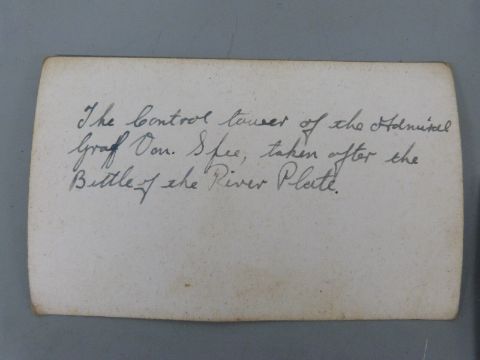 The Control tower of the Admiral
Graf Von. Spee, taken after the
Battle of the River Plate.